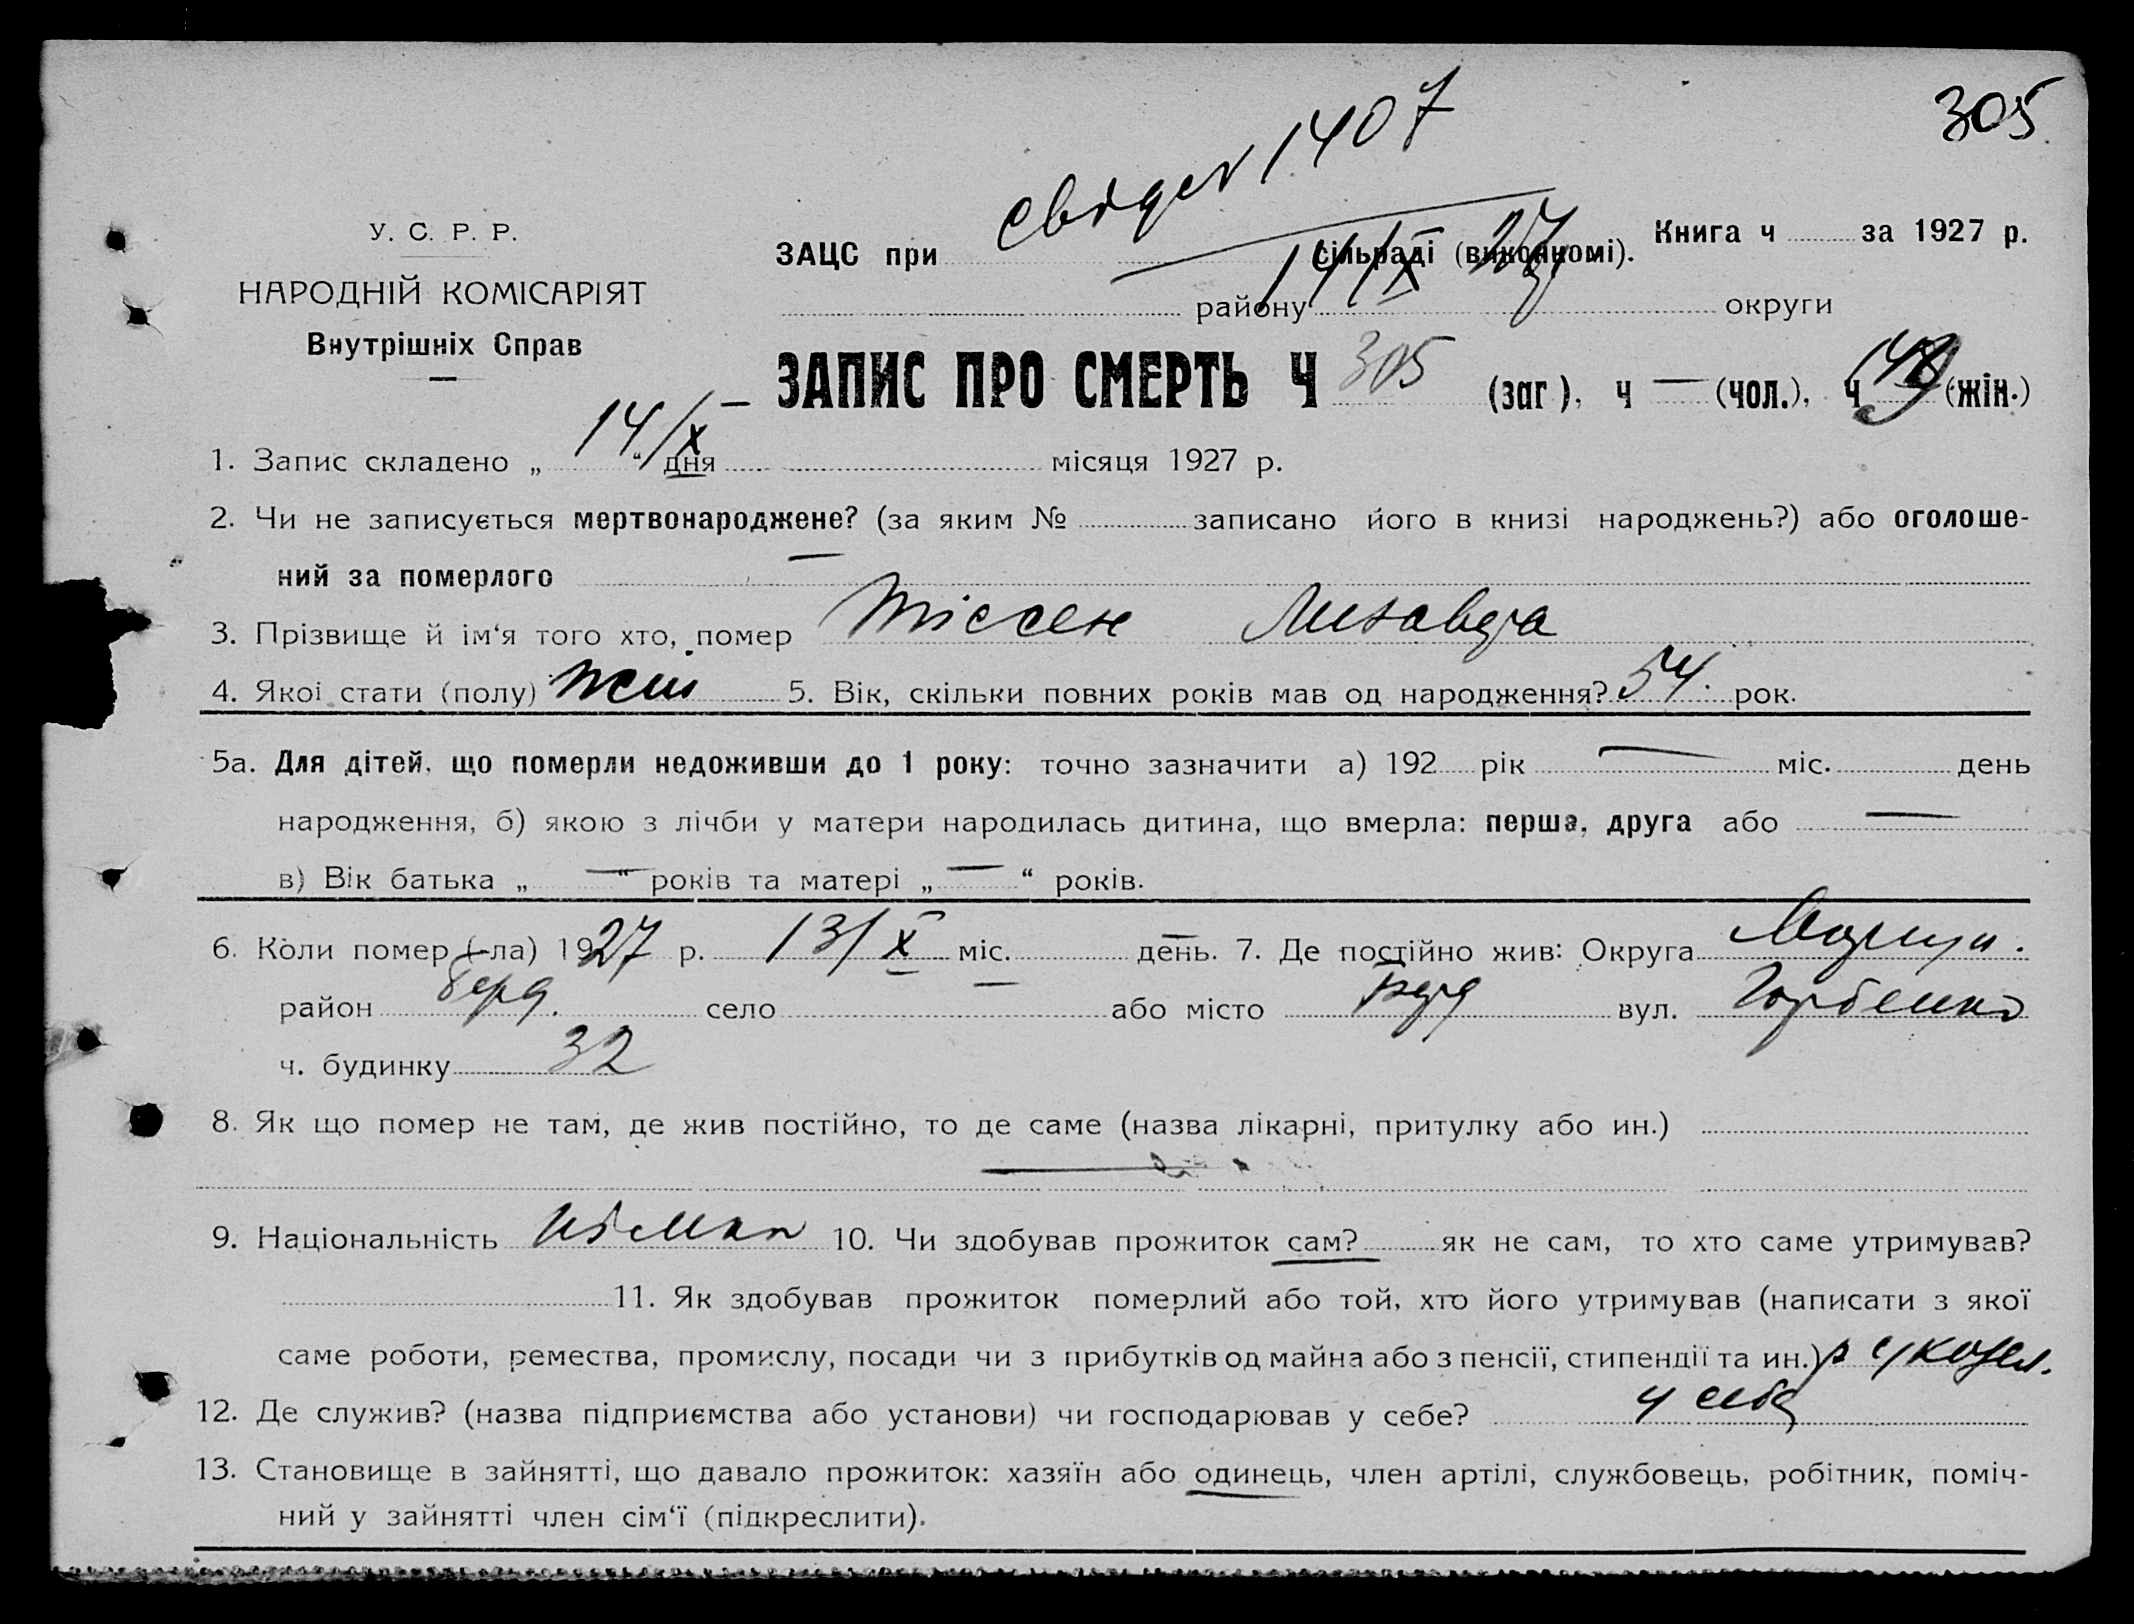 305
свідоц 1407
14/X 27
У. С. Р. Р.
НАРОДНІЙ КОМІСАРІЯТ
Внутрішніх Справ
ЗАЦС при сільраді (виконкомі). Книга ч за 1927 р.
району округи
ЗАПИС ПРО СМЕРТЬ Ч 305 (заг), ч — (чол.), ч (жін.)
1. Запис складено „ 14/X “ дня місяця 1927 р.
2. Чи не записується мертвонароджене? (за яким № записано його в книзі народжень?) або оголоше-
ний за померлого —
3. Прізвище й ім‘я того хто, помер Тіссен Лизавета
4. Якої стати (полу) жін 5. Вік, скільки повних років мав од народження? 54 рок.
5а. Для дітей, що померли недоживши до 1 року: точно зазначити а) 192 рік — міс. день
народження, б) якою з лічби у матери народилась дитина, що вмерла: перша, друга або —
в) Вік батька „ — “ років та матері „ — “ років.
6. Коли помер (-ла) 1927 р. 13/X міс. — день. 7. Де постійно жив: Округа Маріуп.
район Берд. село — або місто Берд вул. Горбенко
ч. будинку 32
8. Як що помер не там, де жив постійно, то де саме (назва лікарні, притулку або ин.)
—
9. Національність німка 10. Чи здобував прожиток сам? як не сам, то хто саме утримував?
11. Як здобував прожиток померлий або той, хто його утримував (написати з якої
саме роботи, ремества, промислу, посади чи з прибутків од майна або з пенсії, стипендії та ин.)
12. Де служив? (назва підприємства або установи) чи господарював у себе? у себе
13. Становище в зайнятті, що давало прожиток: хазяїн або одинець, член артілі, службовець, робітник, поміч-
ний у зайнятті член сім‘ї (підкреслити).